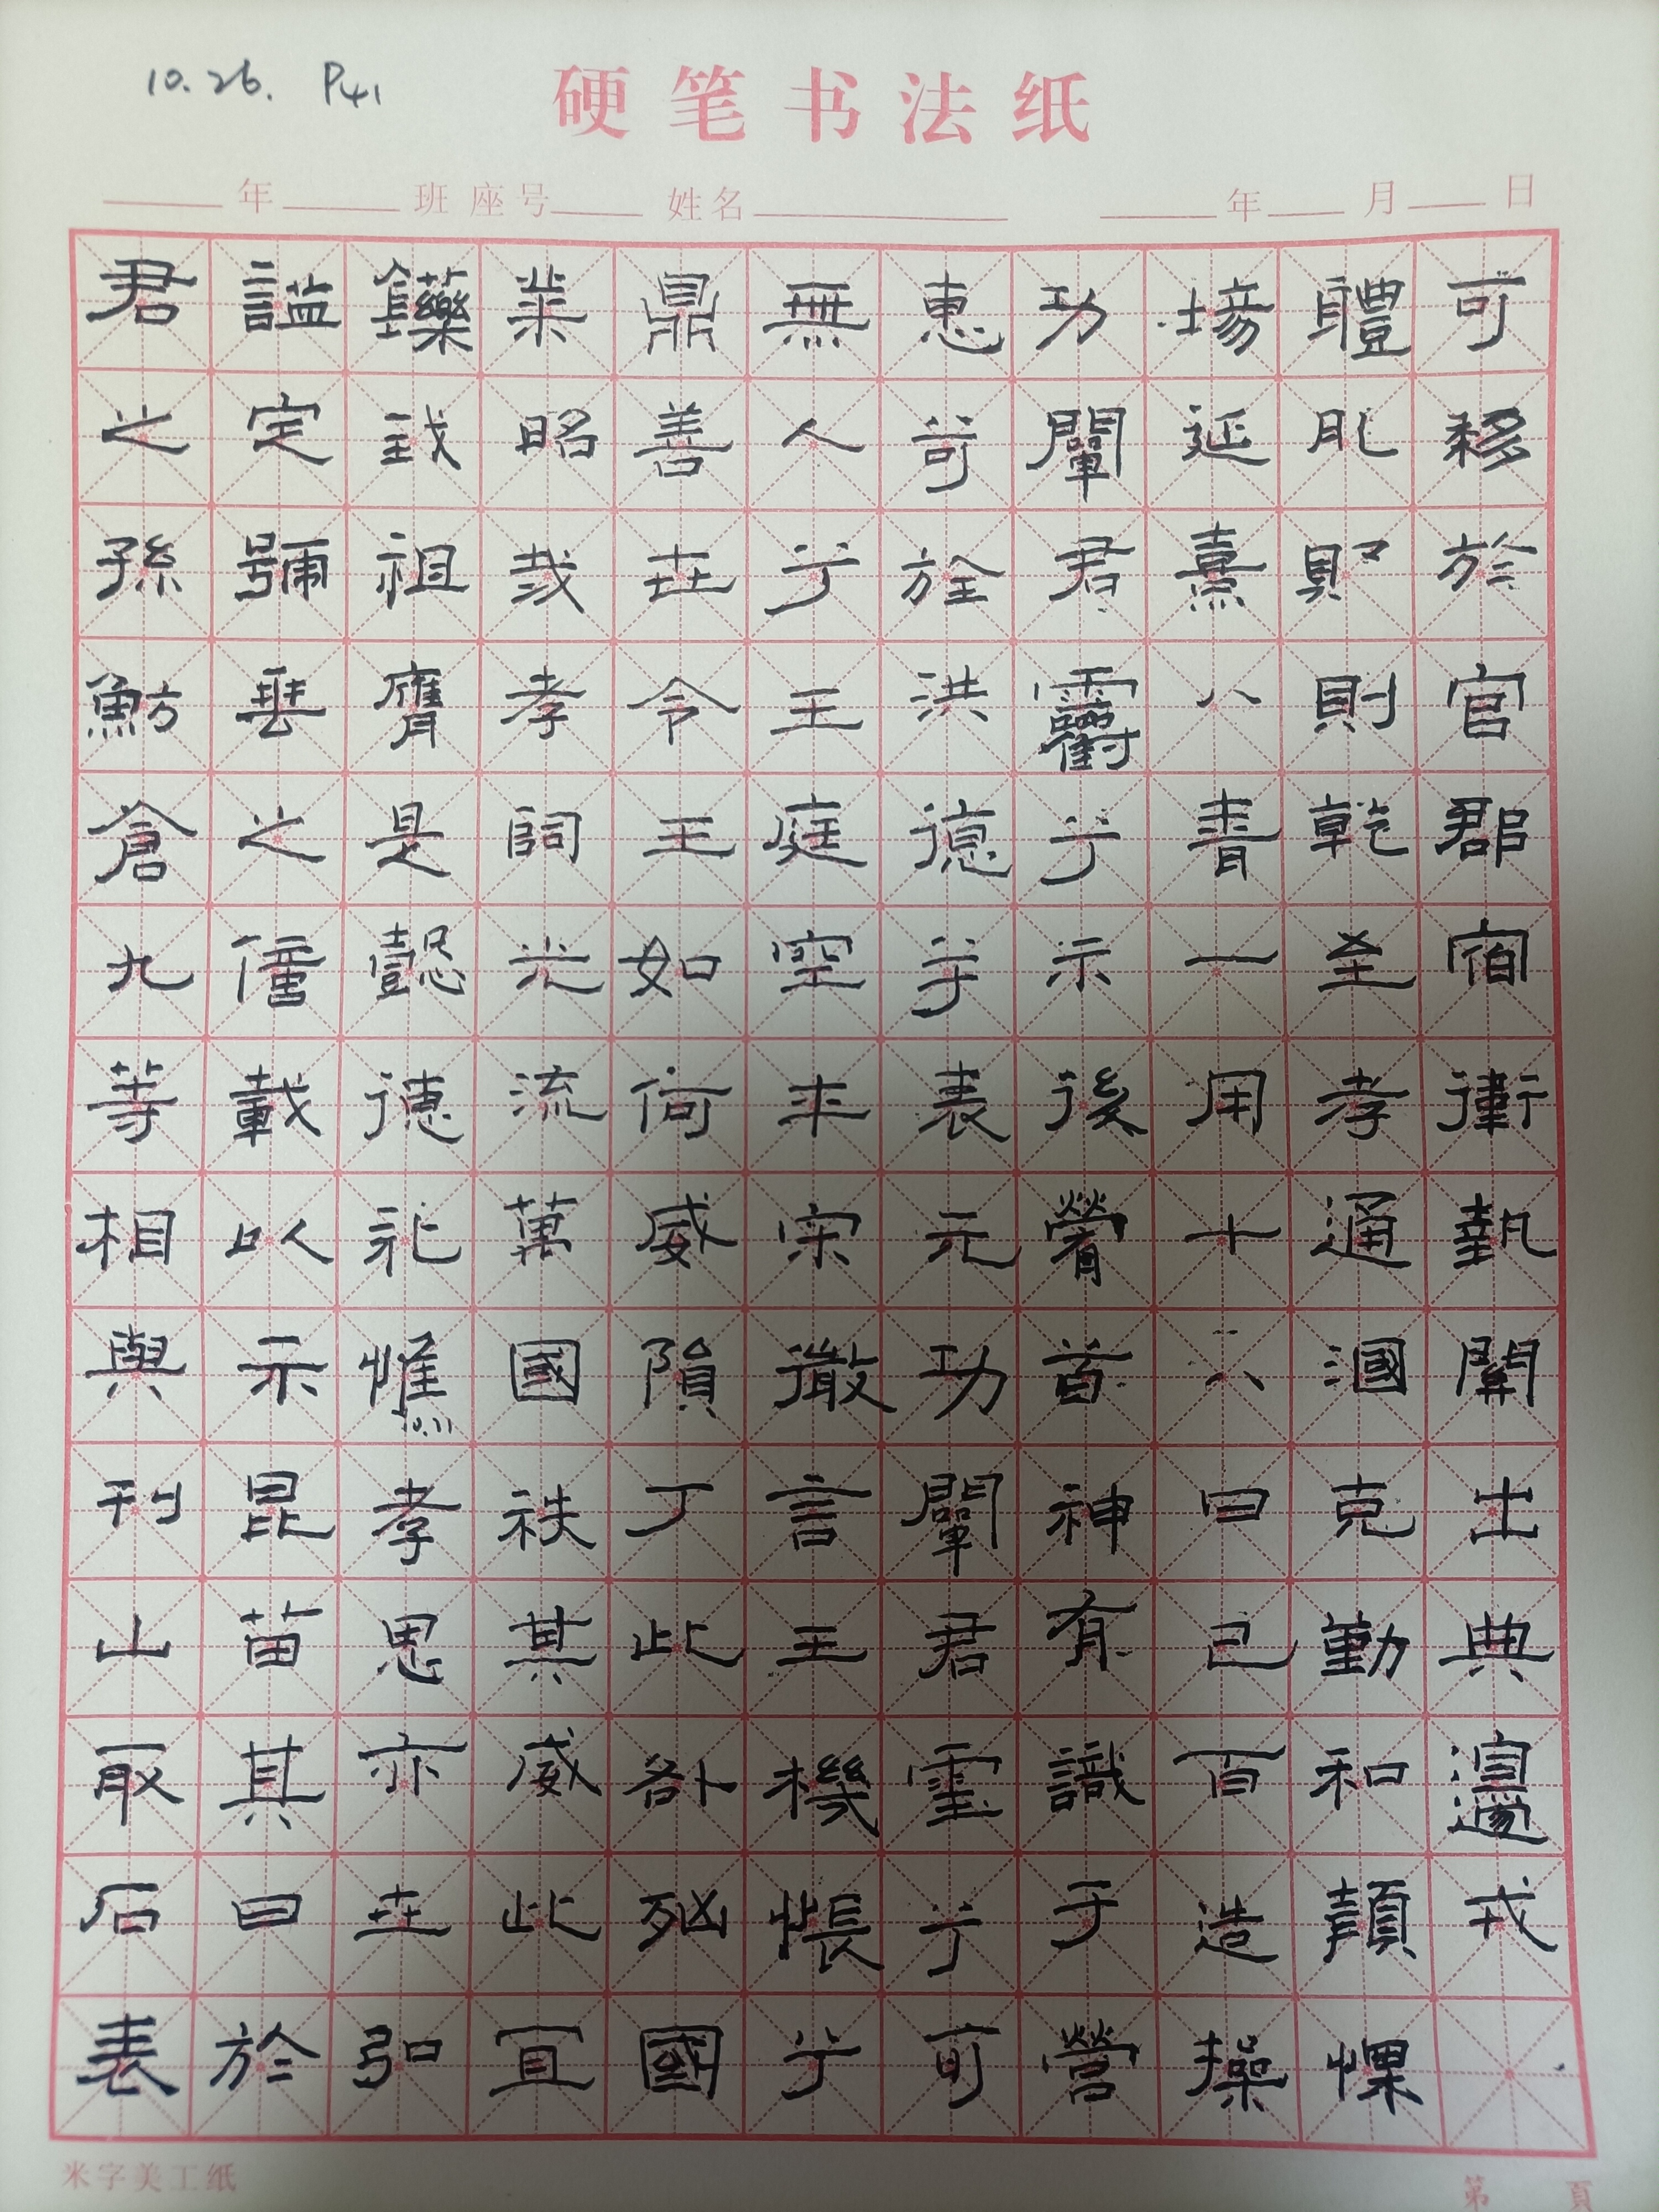 10.26. P41
硬笔书法纸
年 班 座号 姓名 年 月 日
君之孫魴倉九等相與刊山取石表
謚定號垂之億載以示昆苗其曰於
鑠我祖膺是懿德祀惟孝思亦世弘
業昭哉孝嗣光流萬國秩其威此宜
鼎善世令王如何威隕丁此咎凶國
無人兮王庭空年宗徹言王機悵兮
惠苛於洪德兮表元功闡君靈兮可
功闡君靈兮示後嘗首神有識于營
場延熹八青一用十六日己百造操
體則乾至孝通洞克勤和顏慄
可移於官郡宿衛執士典邊戎
米字美工纸
第 頁